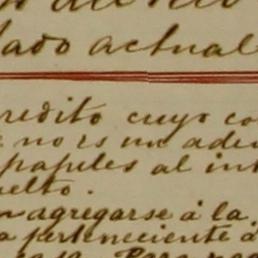 tado actual
redito cuyo co
no es un ade
papeles al int
uelto.
agregarse á la
a perteneciente á